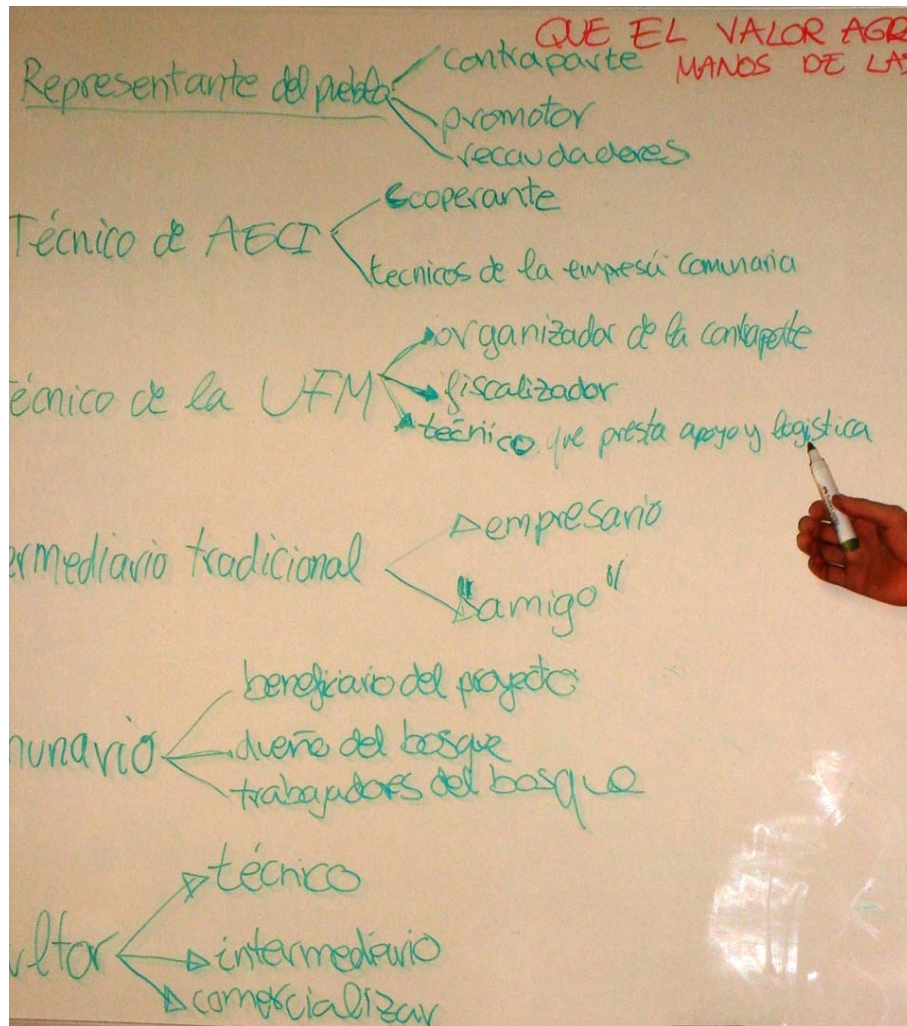 QUE EL VALOR AGR
MANOS DE LAS
Representante del pueblo
contraparte
promotor
recaudadores
Técnico de AECI
cooperante
tecnicos de la empresa comunaria
écnico de la UFM
organizador de la contraparte
fiscalizador
técnico que presta apoyo y logistica
ermediario tradicional
empresario
"amigo"
munario
beneficiario del proyecto
dueño del bosque
trabajadores del bosque
ultor
técnico
intermediario
comercializar